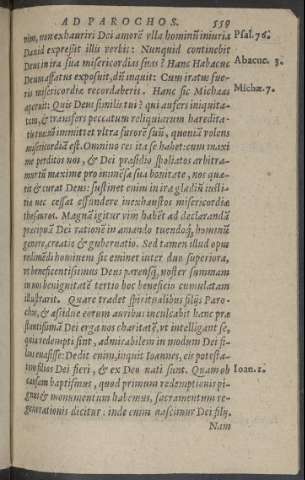 AD PAROCHOS. 559
nim, non exhauriri Dei amorē vlla hominū iniuria
Dauid expressit illis verbis: Nunquid continebit Psal. 76.
Deus in ira sua misericordias suas? Hanc Habacuc
Deum afflatus exposuit, dū inquit: Cum iratus fue- Abacuc. 3.
ris misericordiæ recordaberis. Hanc sic Michæas
aperuit: Quis Deus similis tui? qui aufers iniquita- Michæ. 7.
tem, & transfers peccatum reliquiarum hæredita-
tis tuæ: nō immittet vltra furorē suū, quoniā volens
misericordiā est. Omnino res ita se habet: cum maxi
me perditos nos, & Dei præsidio spoliatos arbitra-
mur: tū maxime pro immēsa sua bonitate, nos quæ-
rit & curat Deus: sustinet enim in ira gladiū iusti-
tiæ nec cessat effundere inexhaustos misericordiæ
thesauros. Magnā igitur vim habēt ad declarandā
præcipuā Dei rationē in amando tuendoq; hominū
genere, creatio & gubernatio. Sed tamen illud opus
redimēdi hominem sic eminet inter duo superiora,
vt beneficentissimus Deus parensq; noster summam
in nos benignitatē tertio hoc beneficio cumulatam
illustrarit. Quare tradet spiritualibus filijs Paro-
chus, & assidue eorum auribus inculcabit hanc præ
stantissimā Dei erga nos charitatē. vt intelligant se,
quia redempti sint, admirabilem in modum Dei fi-
lios euasisse: Dedit enim, inquit Ioannes, eis potestā-
tem filios Dei fieri, & ex Deo nati sunt. Quam ob Ioan. 1.
causam baptismus, quod primum redemptionis pi-
gnus & monumentum habemus, sacramentum re-
generationis dicitur. inde enim nascimur Dei filij.
Nam